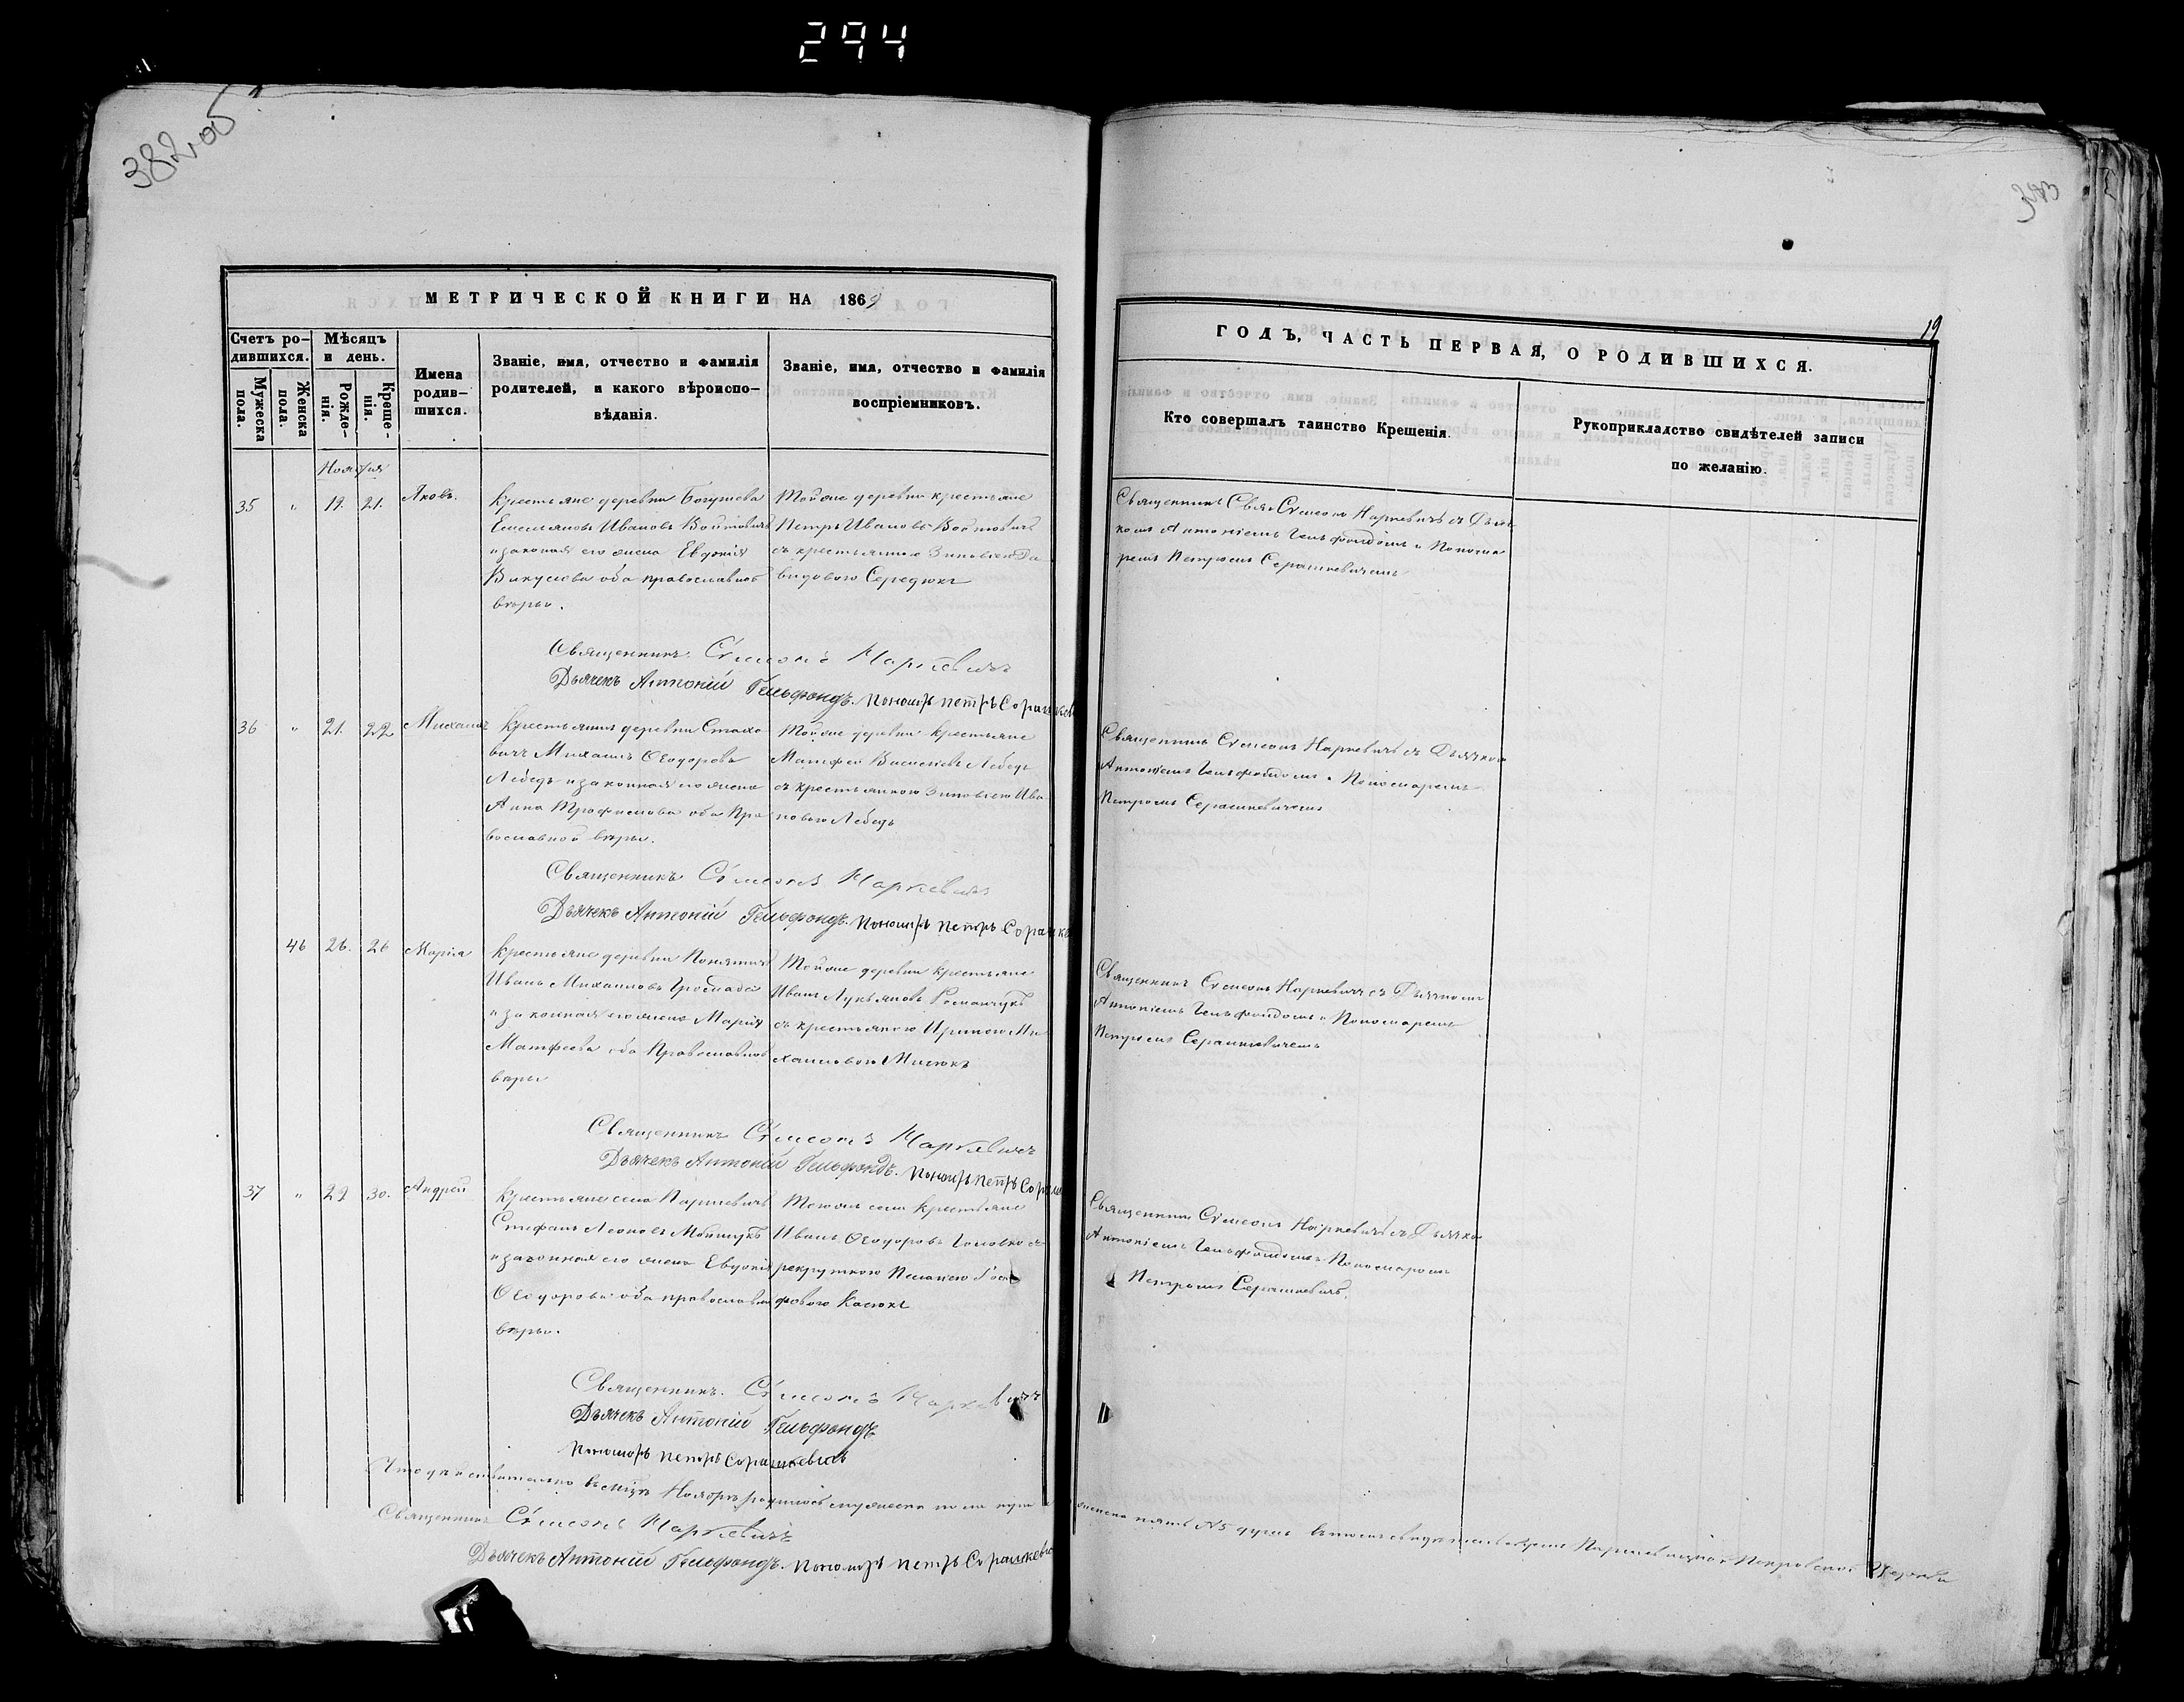 294
382 об
383
МЕТРИЧЕСКОЙ КНИГИ НА 1869
Счетъ ро-
дившихся.
Мужеска
пола.
Женска
пола.
Мѣсяцъ
и день.
Рожде-
нія.
Креще-
нія.
Имена
родив-
шихся.
Званіе, имя, отчество и фамилія
родителей, и какого вѣроиспо-
вѣданія.
Званіе, имя, отчество и фамилія
воспріемниковъ.
19
ГОДЪ, ЧАСТЬ ПЕРВАЯ, О РОДИВШИХСЯ.
Кто совершалъ таинство Крещенія.
Рукоприкладство свидѣтелей записи
по желанію.
Ноября
35 " 19. 21. Яковъ.
Крестьяне деревни
Емельяновъ Ивановъ Войтовичъ
и законная его жена Евдокія
оба православной
вѣры.
Той же деревни крестьяне
Петръ Ивановъ Войтовичъ
съ крестьянкою Зиновіею Да
видовою Середюкъ
Священникъ Симеонъ Наркевичъ съ Дьяч
комъ Антоніемъ Гельфондомъ и Понома
ремъ Петромъ Серашкевичемъ
Священникъ Симеонъ Наркевичъ
Дьячекъ Антоній Гельфондъ. Пономарь Петръ
36 " 21. 22 Михаилъ
Крестьянинъ деревни Стахо
вичъ Михаилъ Ѳеодоровъ
Лебедь и законная его жена
Анна Трофимова оба Пра
вославной вѣры.
Той же деревни крестьяне
Матфей Лебедь
съ крестьянкою Зиновіею Ива
новою Лебедь
Священникъ Симеонъ Наркевичъ съ Дьячкомъ
Антоніемъ Гельфондомъ и Пономаремъ
Петромъ Серашкевичемъ
Священникъ Симеонъ Наркевичъ
Дьячекъ Антоній Гельфондъ. Пономарь Петръ
46 26. 26 Марія
Крестьяне деревни
Иванъ Михаиловъ
и законная его жена Марія
Матфеева оба Православной
вѣры
Той же деревни крестьяне
Иванъ Лукьяновъ Романчукъ
съ крестьянкою Ириною Ми
хаиловою Мисюкъ
Священникъ Симеонъ Наркевичъ съ Дьячкомъ
Антоніемъ Гельфондомъ и Пономаремъ
Петромъ Серашкевичемъ
Священникъ Симеонъ Наркевичъ
Дьячекъ Антоній Гельфондъ. Пономарь Петръ
37 " 29 30. Андрей
Крестьяне села
Стефанъ
и законная его жена Евдокія
Ѳеодорова оба православной
вѣры.
Того же села крестьяне
Иванъ Ѳеодоровъ Головко съ
рекруткою Пелагіею
Касюкъ
Священникъ Симеонъ Наркевичъ съ Дьячко
Антоніемъ Гельфондомъ Пономаремъ
Петромъ Серашкевичъ.
Священникъ. Симеонъ Наркевичъ
Дьячекъ Антоній Гельфондъ
Пономарь Петръ Серашкевичъ
Что дѣйствительно въ Ноябрѣ родилось мужеска пола
женска пять №5 душъ въ томъ Покровской Церкви
Священникъ Симеонъ Наркевичъ
Дьячекъ Антоній Гельфондъ. Пономарь Петръ Серашкевичъ